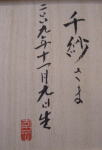 千紗さま
二〇〇九年十一月九日生